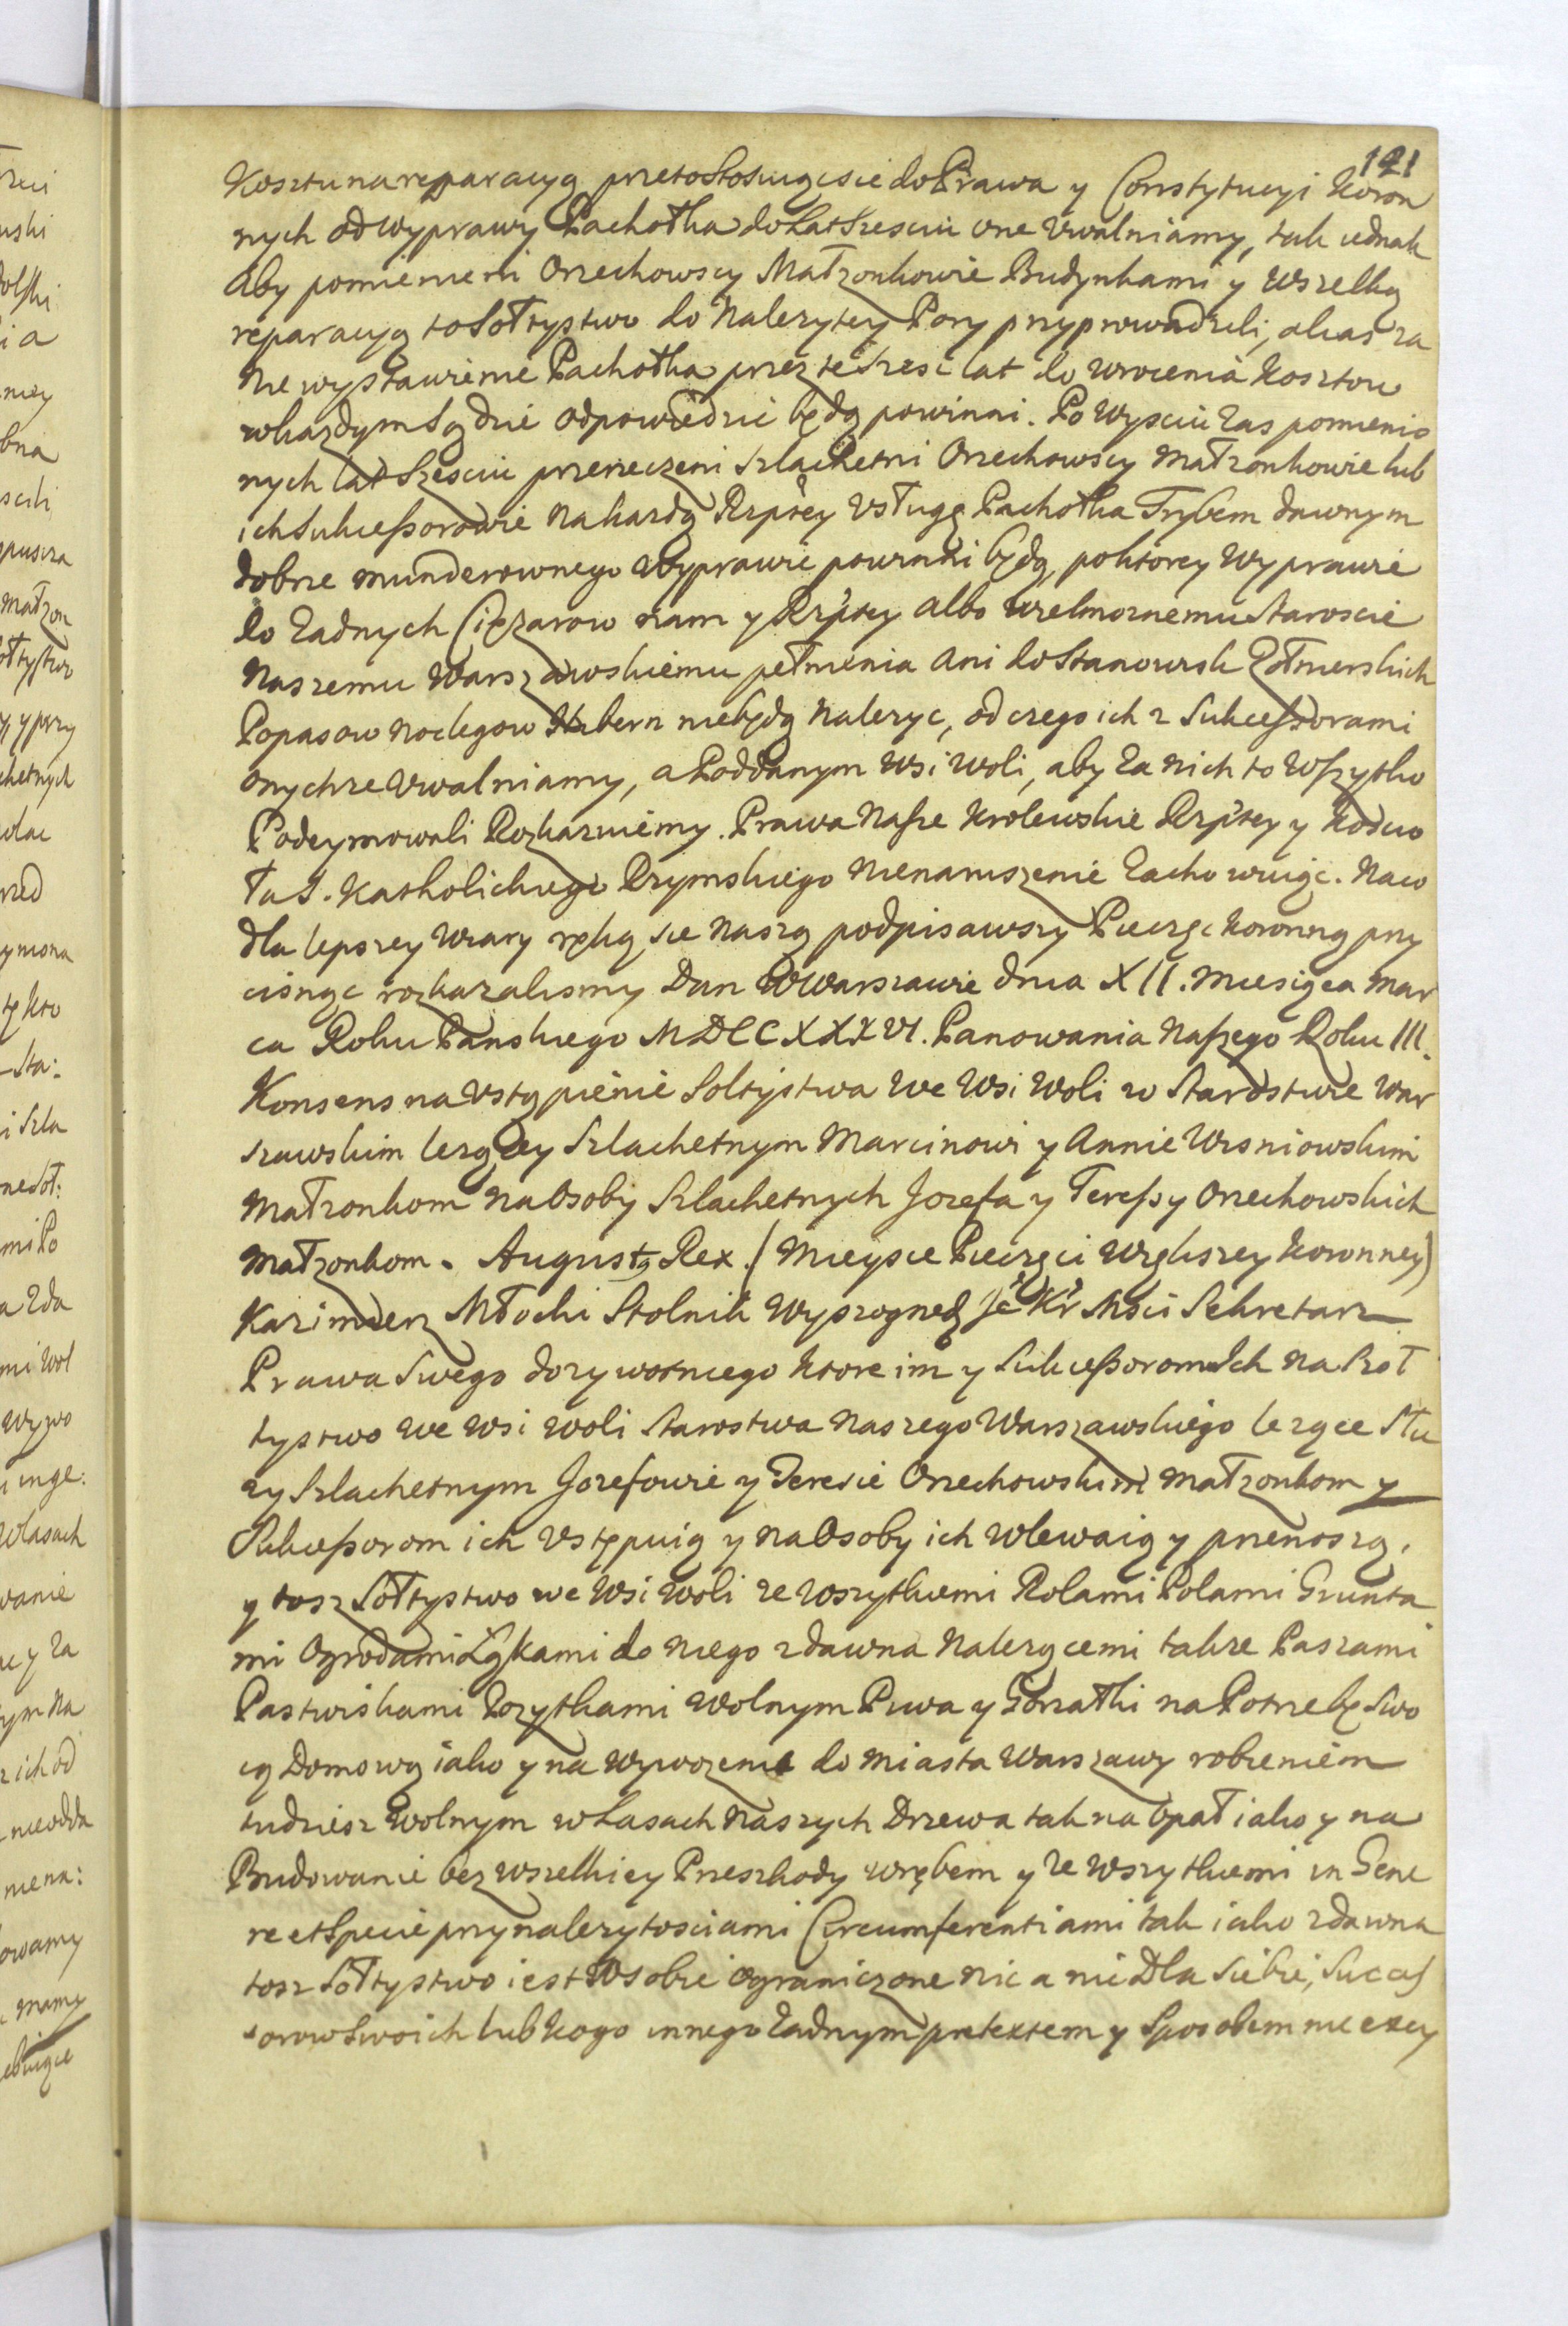 121
Kosztu na reparacyą przeto stosuiąc sie do Prawa y Constytucyi Koron
nych od wyprawy Pachołka do Lat szesciu one Uwalniamy, tak iednak
Aby pomienieni Orzechowscy Małzonkowie Budynkami y Wszelką
reparacyą to Sołtystwo do Nalezytey Pory przyprowadzili, alias za
Nie wystawienie Pachołka przez te szesc lat do wrocenia Kosztow
w kazdym Sądzie odpowiedzic będą powinni. Po Wysciu zas pomienio
nych lat szesciu przerzeczeni Szlachetni Orzechowscy Małzonkowie lub
ich Sukceßorowie Na kazdą Rzptey Usługę Pachołka Trybem dawnym
dobrze munderownego Wyprawic powinni będą, po ktorey Wyprawie
do Zadnych Cięzarow nam y Rzptey albo Wielmoznemu Staroscie
Naszemu Warszawskiemu pełnienia Ani do Stanowisk Zołnierskich
Popasow Noclegow Hibern niebędą Nalezyc, od czego ich z Sukceßorami
Onychze Uwalniamy, a Poddanym Wsi Woli, aby za Nich to Wszytko
Podeymowali Rozkazuiemy. Prawa Nasze Krolewskie Rzptey y Koscio
ła S. Katholickiego Rzymskiego Nienaruszenie Zachowuiąc. Na co
dla lepszey Wiary ręką sie Naszą podpisawszy Pieczęc Koronną przy
cisnąc rozkazalismy Dan w Warszawie dnia XII. Miesiąca Mar
ca Roku Panskiego MDCCXXXVI. Panowania Naszego Roku III.
Konsens na Ustąpienie Soltystwa We Wsi Woli w Starostwie War
szawskim lezącey Szlachetnym Marcinowi y Annie Wisniowskim
Małzonkom Na Osoby Szlachetnych Jozefa y Tereßy Orzechowskich
Małzonkom. Augustg Rex. (Mieysce Pieczęci Większey Koronney)
Kazimierz Młocki Stolnik Wyszogrodz Je° Kr Mosci Sekretarz
Prawa Swego dozywotniego Ktore im y Sukceßorom Ich Na Szoł
tystwo We Wsi Woli Starostwa Naszego Warszawskiego lezące Słu
zy Szlachetnym Jozefowie y Teresie Orzechowskim Małzonkom y
Sukceßorom ich Ustępuią y Na Osoby ich Wlewaią y przenoszą,
y tosz Sołtystwo we Wsi Woli ze Wszytkiemi Rolami Polami Grunta
mi Ogrodami Łąkami do Niego zdawna Nalezącemi takze Paszami
Pastwiskami Pozytkami Wolnym Piwa y Gorzałki na Potrzebę Swo
ią Domową iako y na Wywozenie do Miasta Warszawy robieniem
tudziesz Wolnym w Lasach Naszych Drzewa tak na Opał iako y na
Budowanie bez Wszelkiey Przeszkody Wrębem y ze Wszytkiemi in Gene
re et Specie przynalezytosciami Circumferentiami tak iako zdawna
tosz Sołtystwo iest W sobie Ograniczone Nic a nic Dla Siebie, Succes
sorow Swoich lub Kogo innego Zadnym pretextem y Sposobem nie excy